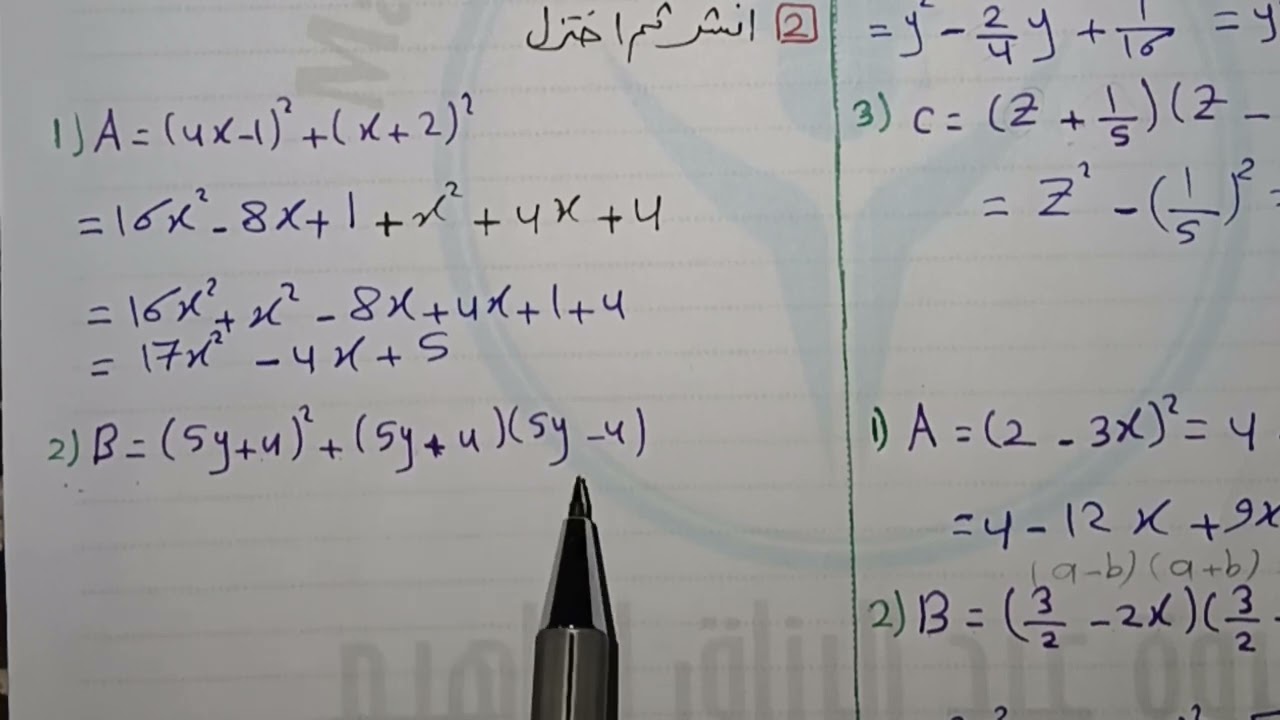 2 انشر ثم اختزل
1) A = (4x-1)² + (x+2)²
= 16x² - 8x + 1 + x² + 4x + 4
= 16x² + x² - 8x + 4x + 1 + 4
= 17x² - 4x + 5
2) B = (5y+4)² + (5y+4)(5y-4)
= y² - 2/4 y + 1/16 = y
3) C = (Z + 1/5)(Z -
= Z² - (1/5)² =
1) A = (2 - 3x)² = 4
= 4 - 12x + 9x
(a-b)(a+b)
2) B = (3/2 - 2x)(3/2 -